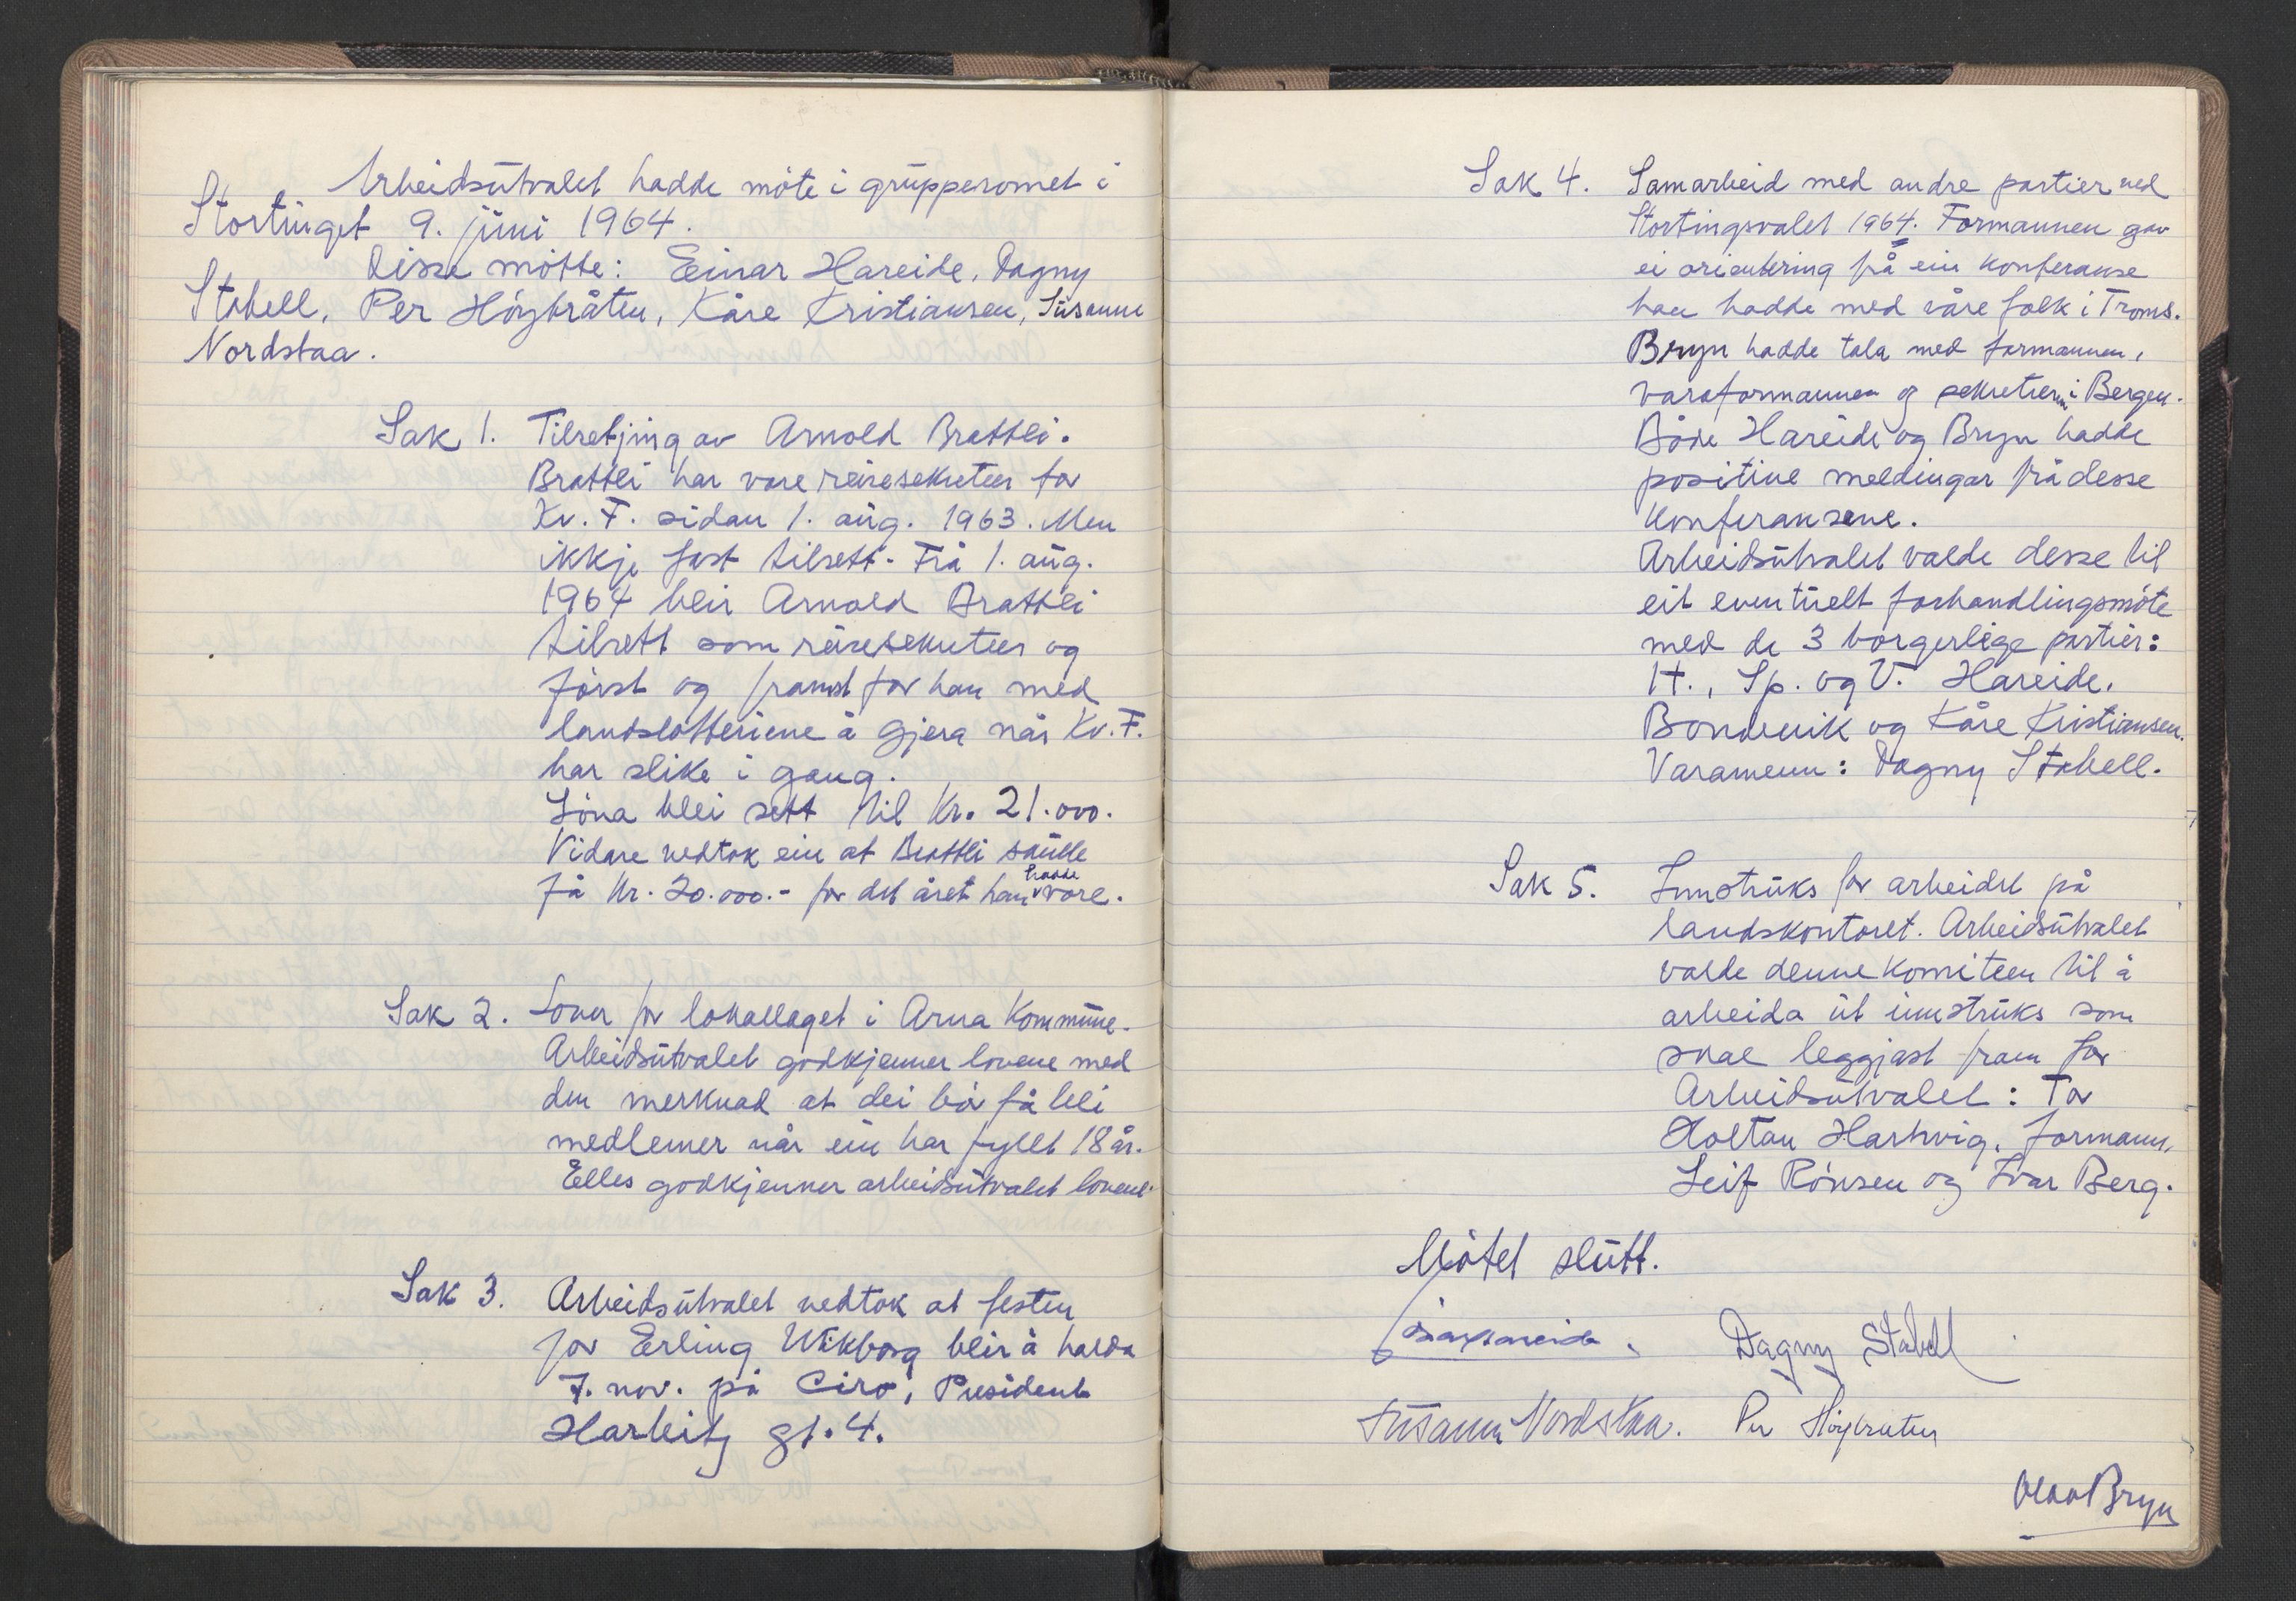 Arbeidsutvalet hadde möte i grupperomet i
Stortinget 9. juni 1964.
Disse mötte: Einar Hareide, Dagny
Stabell, Per Höybråten, Kåre Kristiansen, Susanne
Nordstaa.
Sak 1. Tilsetjing av Arnold Brattli.
Brattli har vore reisesekretær for
Kr. F. sidan 1. aug. 1963. Men
ikkje fast tilsett. Frå 1. aug.
1964 blir Arnold Brattli
tilsett som reisesekretær og
först og framst får han med
landslotteriene å gjera når Kr. F.
har slike i gang.
Löna blei sett til kr. 21.000.
Vidare vedtok ein at Brattli skulle
få kr. 20.000.- for det året han hadde vore.
Sak 2. Lover for lokallaget i Arna kommune.
Arbeidsutvalet godkjenner lovene med
den merknad at dei bör få bli
medlemer når ein har fyllt 18 år.
Elles godkjenner arbeidsutvalet lovene.
Sak 3. Arbeidsutvalet vedtok at festen
for Erling Wikborg blir å halda
7. nov. på Ciro, President
Harbitz gt. 4.
Sak 4. Samarbeid med andre partier ved
Stortingsvalet 1964. Formannen gav
ei orientering frå ein konferanse
han hadde med våre folk i Troms.
Bryn hadde tala med formannen,
varaformannen og sekretæren i Bergen.
Både Hareide og Bryn hadde
positive meldingar frå desse
konferansene.
Arbeidsutvalet valde desse til
eit eventuelt forhandlingsmöte
med de 3 borgerlige partier:
H., Sp. og V. Hareide,
Bondevik og Kåre Kristiansen.
Varamenn: Dagny Stabell.
Sak 5. Innstruks for arbeidet på
landskontoret. Arbeidsutvalet
valde denne komiteen til å
arbeida ut innstruks som
skal leggjast fram for
Arbeidsutvalet: Tor
Holtan Hartwig, formann,
Leif Rönsen og Ivar Berg.
Mötet slutt.
Einar Hareide. Dagny Stabell
Susanne Nordstaa. Per Höybråten
Olav Bryn